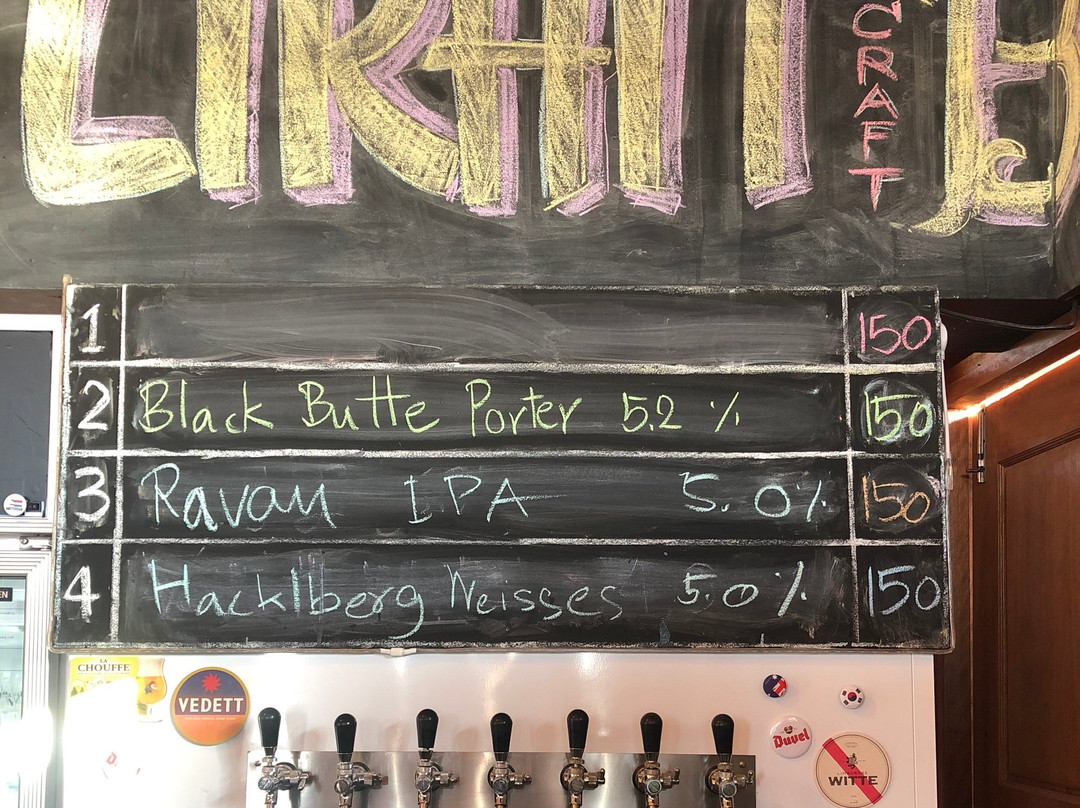 CRAFT
1 150
2 Black Butte Porter 5.2 % 150
3 Ravan IPA 5.0% 150
4 Hacklberg Weisses 5.0% 150
LA
CHOUFFE
VEDETT
Duvel
WITTE